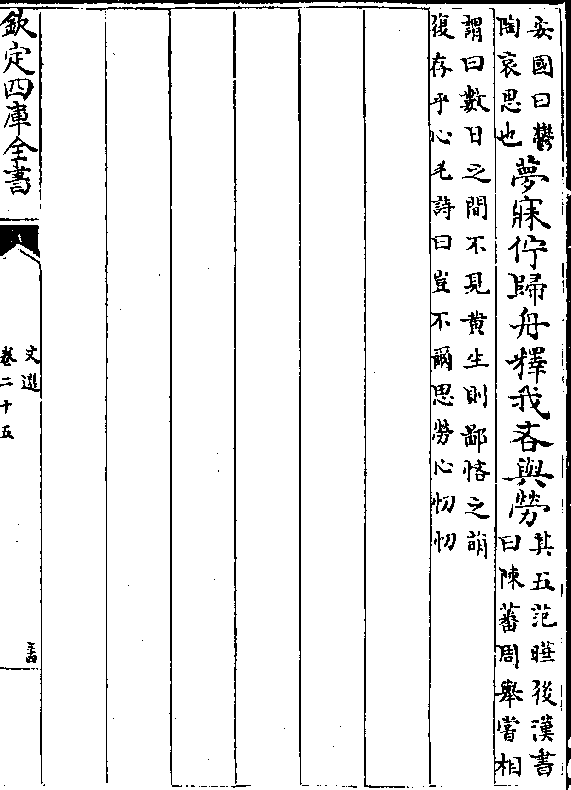 安國曰鬱
陶哀思也
夢寐佇歸舟釋我吝與勞
其五范曄後漢書
曰陳蕃周舉嘗相
謂曰數日之間不見黄生則鄙悋之萌
復存乎心毛詩曰豈不爾思勞心忉忉
欽定四庫全書
文選
卷二十五